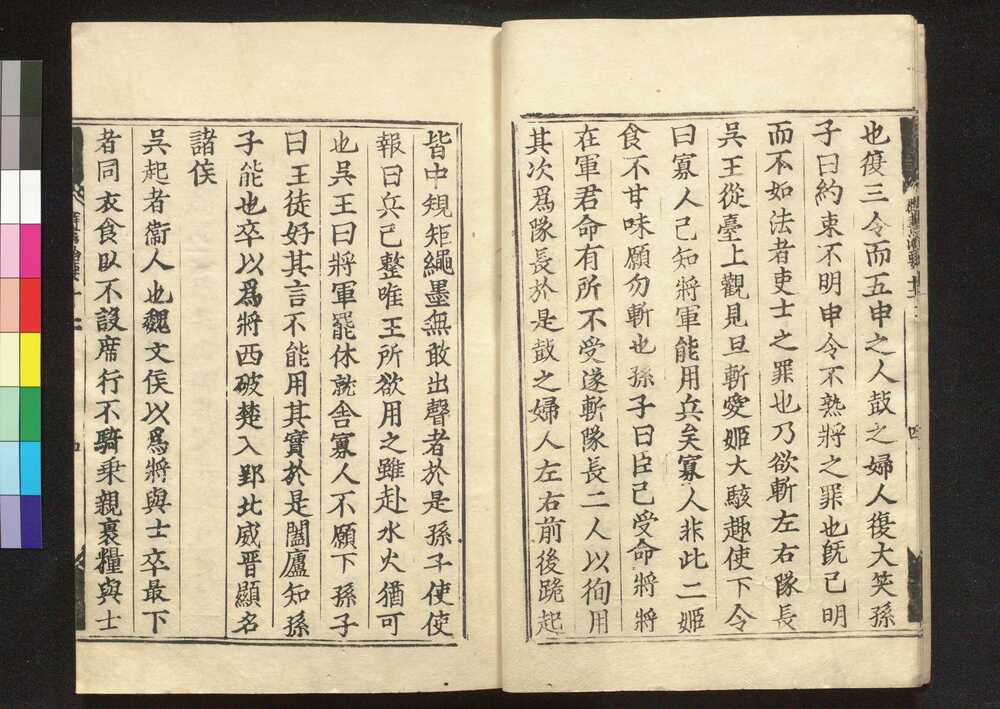 也復三令而五申之人鼓之婦人復大笑孫
子曰約束不明申令不熟將之罪也既已明
而不如法者吏士之罪也乃欲斬左右隊長
吳王從臺上觀見且斬愛姬大駭趣使下令
曰寡人已知將軍能用兵矣寡人非此二姬
食不甘味願勿斬也孫子曰臣已受命將將
在軍君命有所不受遂斬隊長二人以徇用
其次爲隊長於是鼓之婦人左右前後跪起
皆中規矩繩墨無敢出聲者於是孫子使使
報曰兵已整唯王所欲用之雖赴水火猶可
也吳王曰將軍罷休就舍寡人不願下孫子
曰王徒好其言不能用其實於是闔廬知孫
子能也卒以爲將西破楚入郢北威晉顯名
諸侯
吳起者衞人也魏文侯以爲將與士卒最下
者同衣食臥不設席行不騎乘親裹糧與士